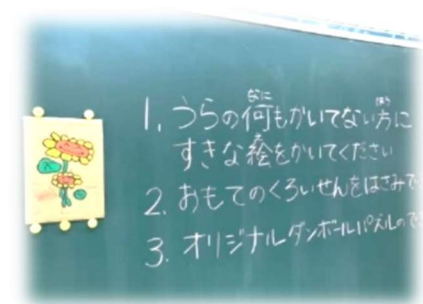 1. うらの何もかいてない方に
すきな絵をかいてください
2. おもてのくろいせんをはさみで
3. オリジナルダンボールパズルので